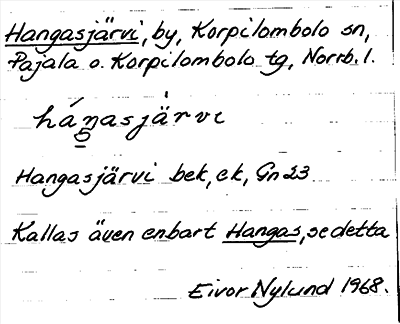 Hangasjärvi, by, Korpilombolo sn,
Pajala o. Korpilombolo tg, Norrb. l.
Hangasjärvi bek, ek, Gn 23
Kallas även enbart Hangas, se detta
Eivor Nylund 1968.